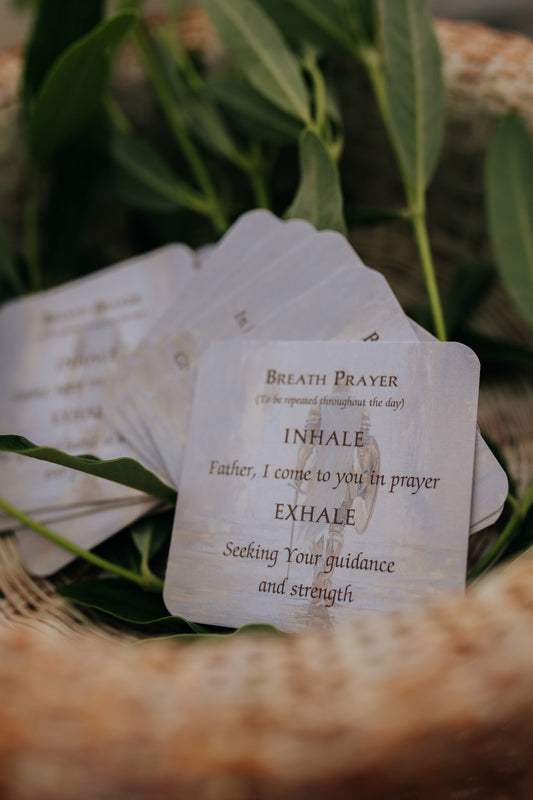 BREATH PRAYER
(To be repeated throughout the day)
INHALE
Father, I come to you in prayer
EXHALE
Seeking Your guidance
and strength
BREATH PRAYER
INHALE
EXHALE